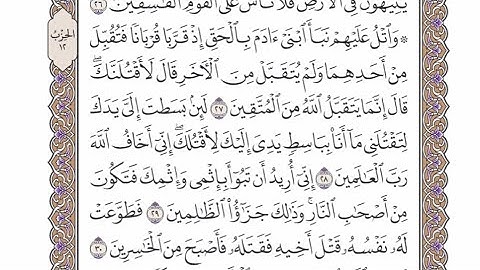 يَتِيهُونَ فِي ٱلْأَرْضِ فَلَا تَأْسَ عَلَى ٱلْقَوْمِ ٱلْفَٰسِقِينَ ٢٦
۞ وَٱتْلُ عَلَيْهِمْ نَبَأَ ٱبْنَىْ ءَادَمَ بِٱلْحَقِّ إِذْ قَرَّبَا قُرْبَانًا فَتُقُبِّلَ
مِنْ أَحَدِهِمَا وَلَمْ يُتَقَبَّلْ مِنَ ٱلْأَخَرِ قَالَ لَأَقْتُلَنَّكَۖ
قَالَ إِنَّمَا يَتَقَبَّلُ ٱللَّهُ مِنَ ٱلْمُتَّقِينَ ٢٧ لَئِنۢ بَسَطتَ إِلَيَّ يَدَكَ
لِتَقْتُلَنِى مَآ أَنَا۠ بِبَاسِطٍ يَدِىَ إِلَيْكَ لِأَقْتُلَكَۖ إِنِّىٓ أَخَافُ ٱللَّهَ
رَبَّ ٱلْعَٰلَمِينَ ٢٨ إِنِّىٓ أُرِيدُ أَن تَبُوٓأَ بِإِثْمِى وَإِثْمِكَ فَتَكُونَ
مِنْ أَصْحَٰبِ ٱلنَّارِۚ وَذَٰلِكَ جَزَٰٓؤُا۟ ٱلظَّٰلِمِينَ ٢٩ فَطَوَّعَتْ
لَهُۥ نَفْسُهُۥ قَتْلَ أَخِيهِ فَقَتَلَهُۥ فَأَصْبَحَ مِنَ ٱلْخَٰسِرِينَ ٣٠
الحزب
١٢